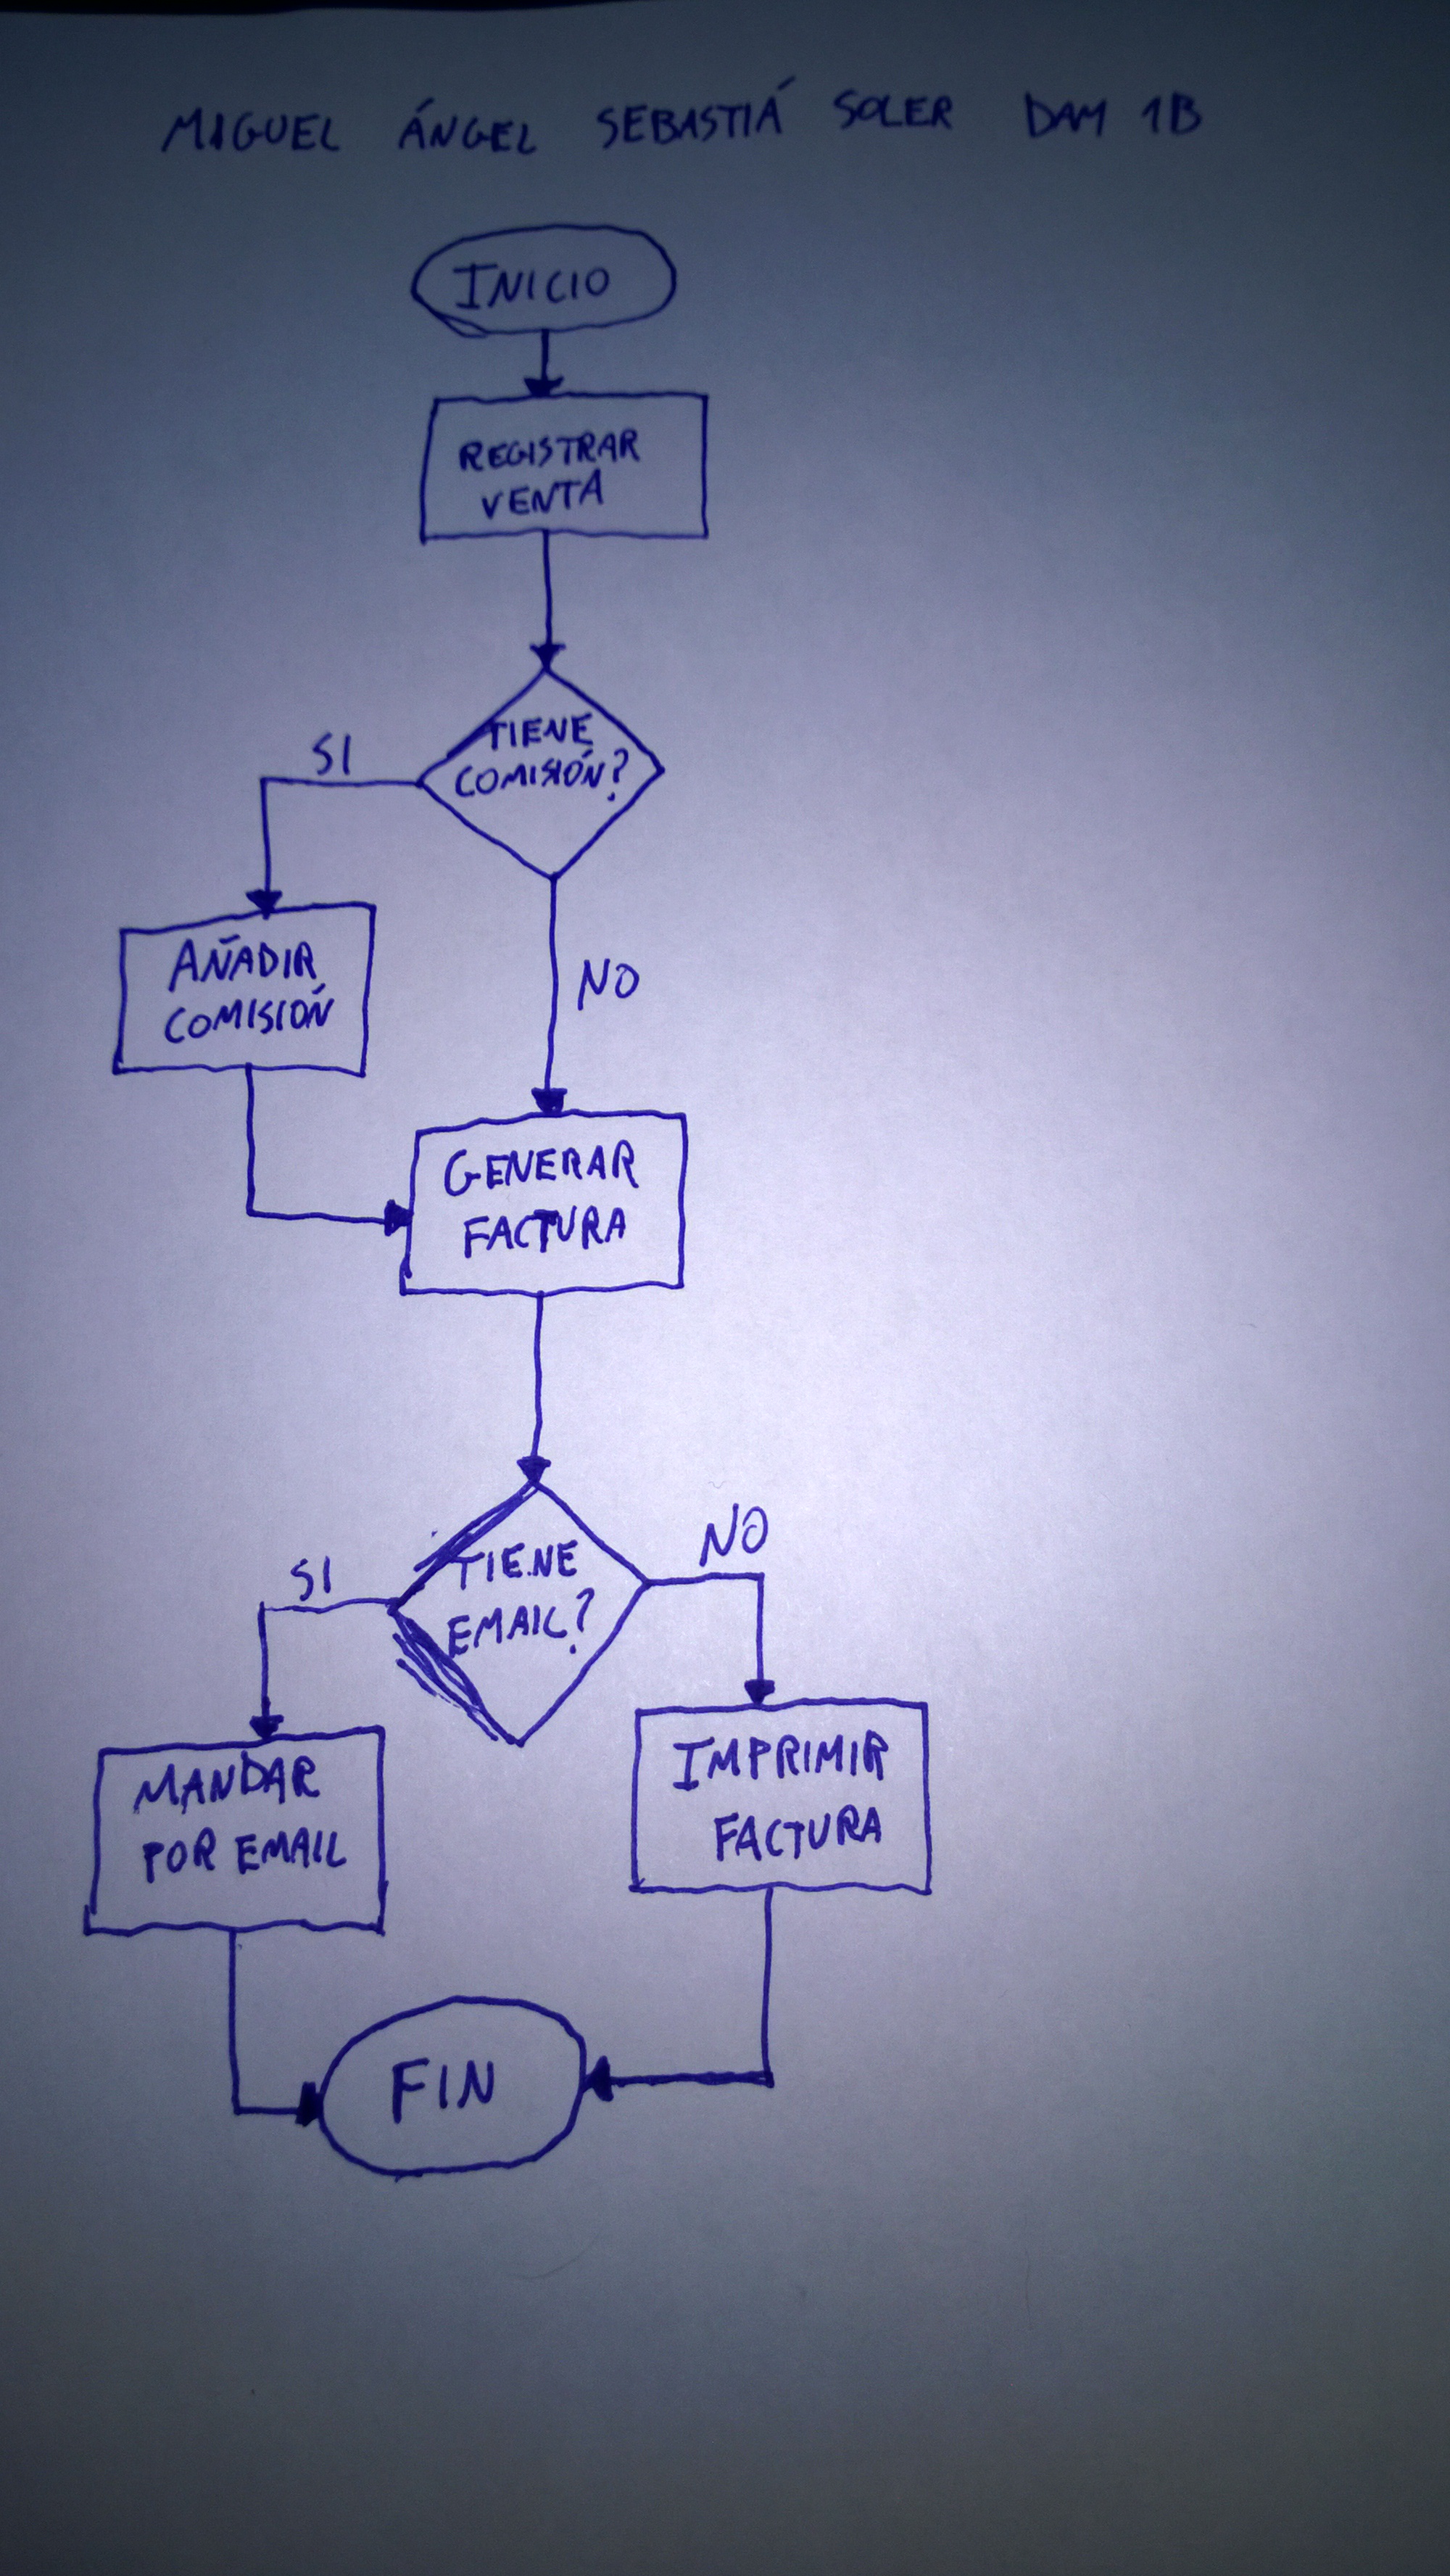 MIGUEL ÁNGEL SEBASTIÁ SOLER DAM 1B
INICIO
REGISTRAR
VENTA
TIENE
COMISIÓN?
SI
NO
AÑADIR
COMISIÓN
GENERAR
FACTURA
TIENE
EMAIL?
SI
NO
MANDAR
POR EMAIL
IMPRIMIR
FACTURA
FIN